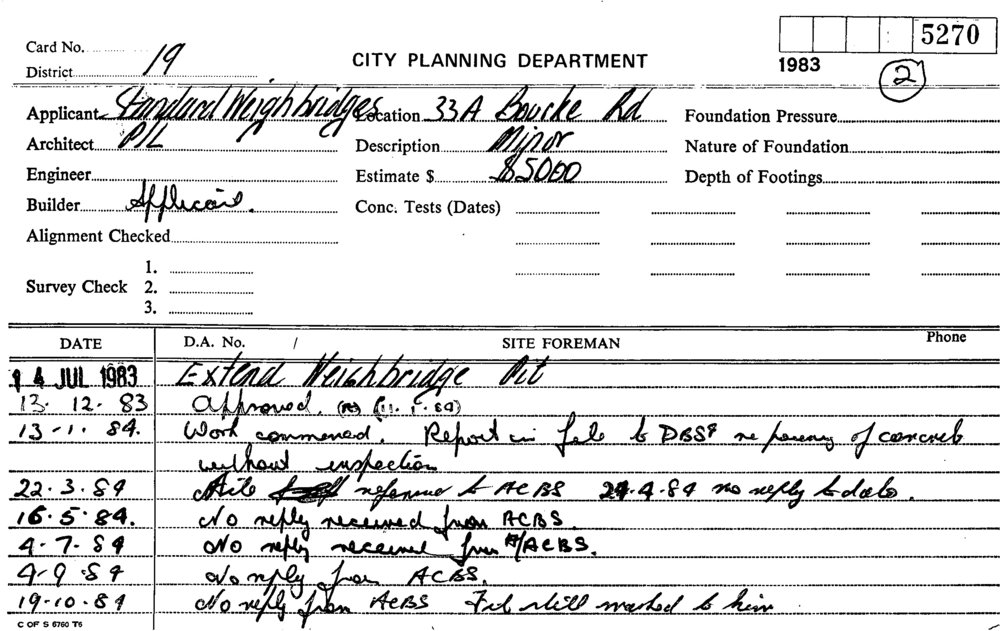 5270
Card No. 19
CITY PLANNING DEPARTMENT
1983
2
District
Applicant Standard Weighbridges Location 33A Bourke Rd Foundation Pressure
Architect P/L Description Minor Nature of Foundation
Engineer Estimate $ $5000 Depth of Footings
Builder Applicant. Conc. Tests (Dates)
Alignment Checked
1.
Survey Check 2.
3.
DATE D.A. No. / SITE FOREMAN Phone
14 JUL 1983 Extend Weighbridge Pit
13. 12. 83 Approved. (11.1.84)
13-1. 84. Work commenced. Report in file to DBS re pouring of concrete
without inspection
22.3.84 File reference to ACBS 24.4.84 no reply to date.
16.5.84. No reply received from ACBS.
4-7.84 No reply received from A/ACBS.
4-9.84 No reply from ACBS.
19-10.84 No reply from ACBS File still marked to him
C OF S 6760 T6